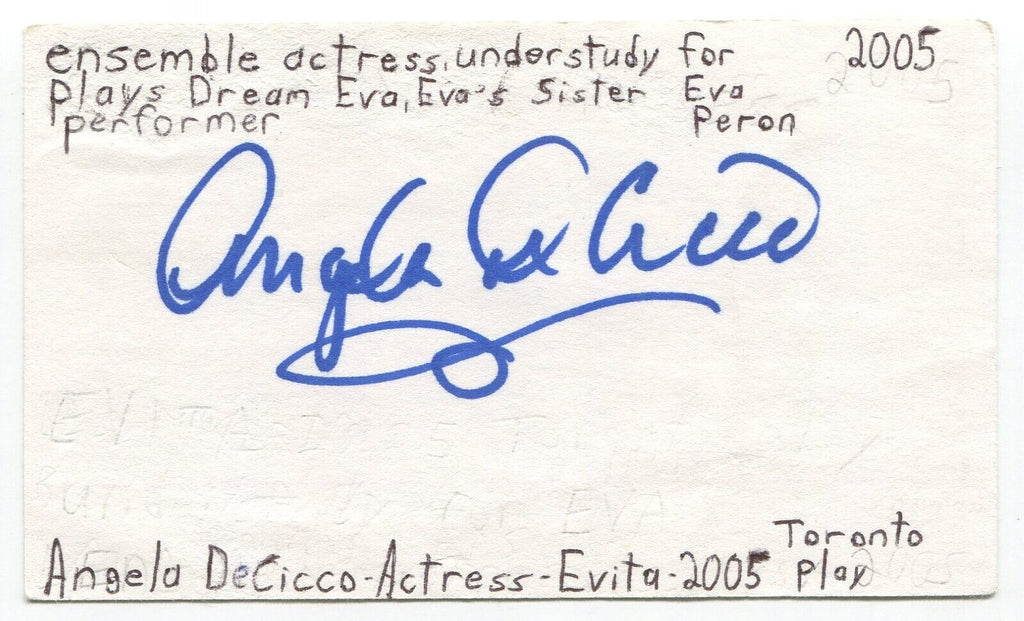 ensemble actress, understudy for 2005
plays Dream Eva, Eva's Sister Eva
performer Peron
Angela DeCicco
Toronto
Angela DeCicco-Actress-Evita-2005 play